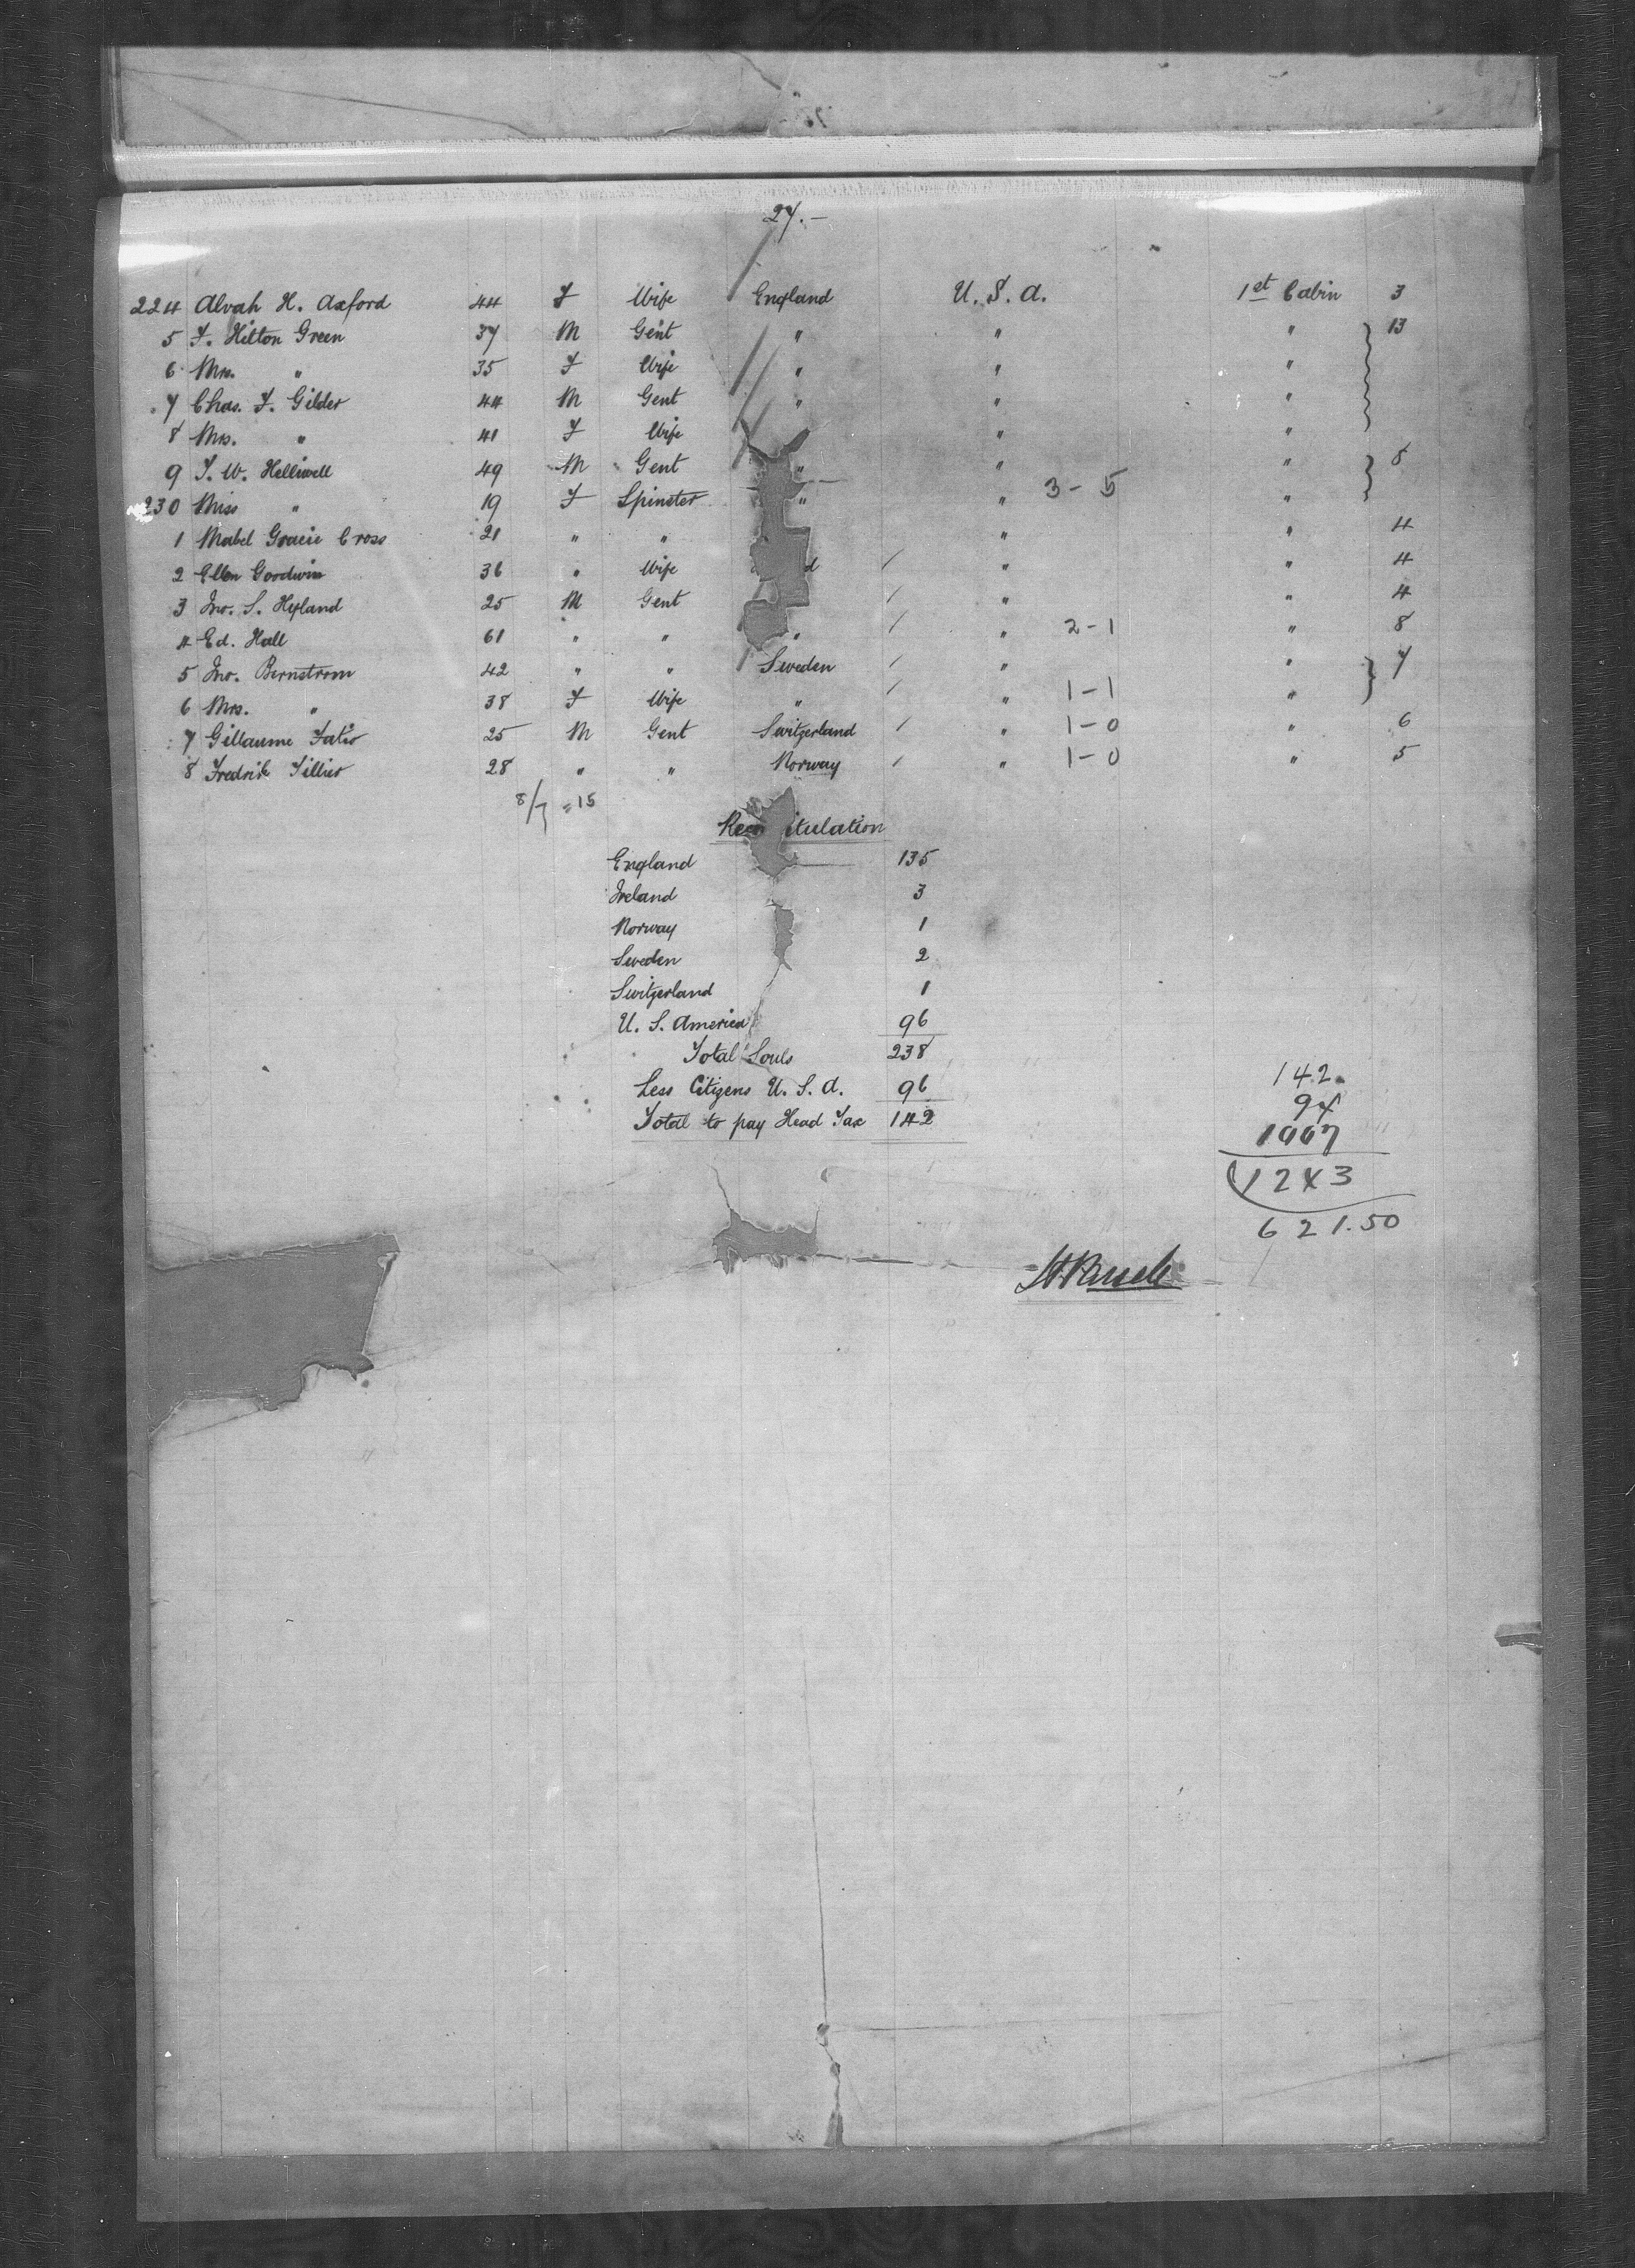 27.-
224 Alvah H. Axford 44 F Wife England U. S. A. 1st Cabin 3
5 F. Hilton Green 37 M Gent " " " 13
6 Mrs. " 35 F Wife " " "
7 Chas. F. Gilder 44 M Gent " " "
8 Mrs. " 41 F Wife " "
9 T. W. Helliwell 49 M Gent " " " 8
230 Miss " 19 F Spinster " " 3-5 "
1 Mabel Gracie Cross 21 " " " " 4
2 Ellen Goodwin 36 " Wife d / " " 4
3 Jno. S. Hyland 25 M Gent / " " 4
4 Ed. Hall 61 " " " / " 2-1 " 8
5 Jno. Bernstrom 42 " " Sweden / " " 7
6 Mrs. " 38 F Wife " / " 1-1 "
7 Gillaume Fatio 25 M Gent Switzerland / " 1-0 " 6
8 Fredrik 28 " " Norway / " 1-0 " 5
8/7 = 15
Rec itulation
England 135
Ireland 3
Norway 1
Sweden 2
Switzerland 1
U. S. America 96
Total Souls 238
Less Citizens U. S. A. 96
Total to pay Head Tax 142
142
94
1007
1243
621.50